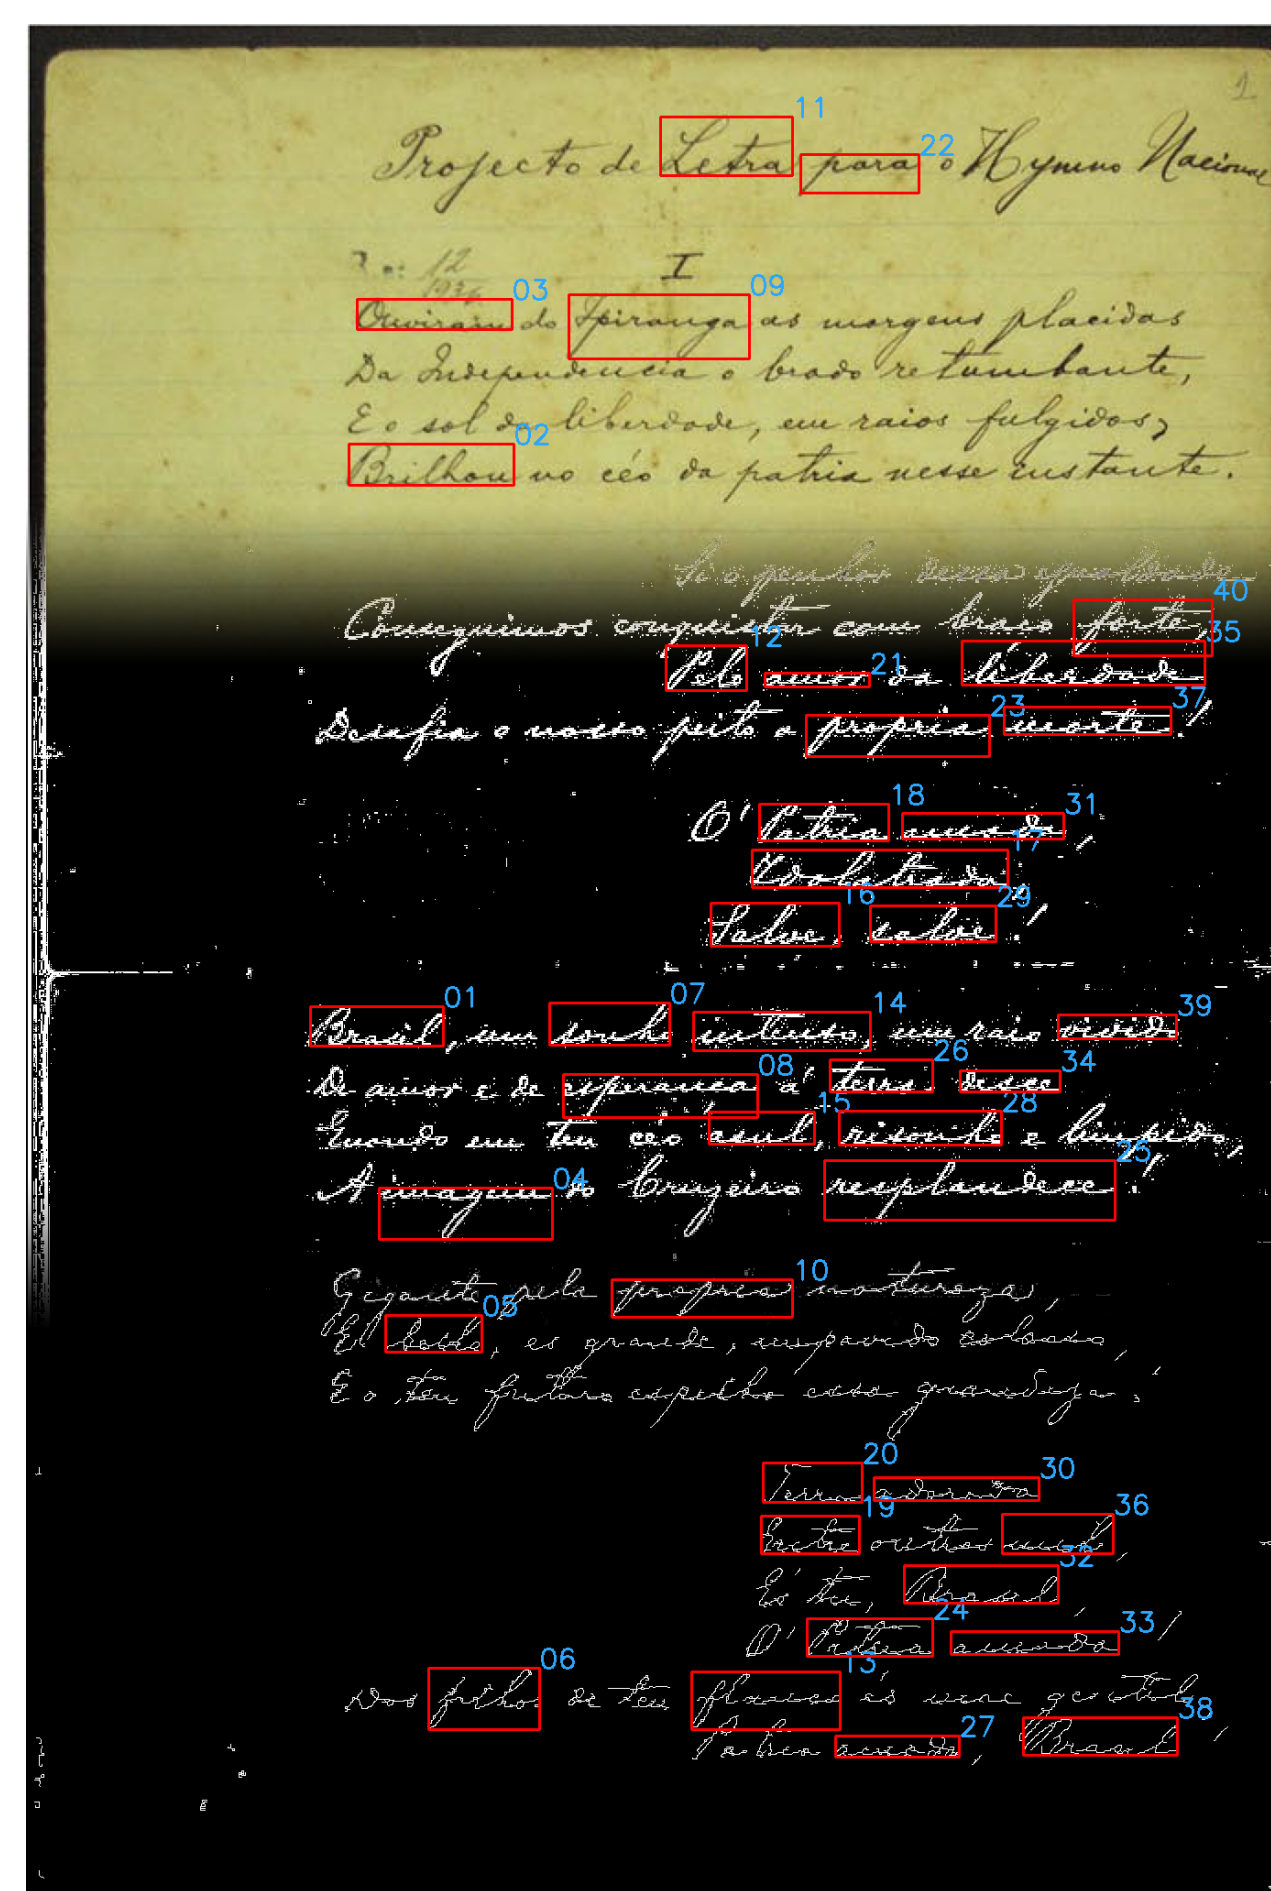 1
11 22
Projecto de Letra para o Hymno Nacional
12
I
03 09
Ouviram do Ipiranga as margens placidas
Da Independencia o brado retumbante,
E o sol da liberdade, em raios fulgidos,
02
Brilhou no céo da patria nesse instante.
Si o penhor dessa egualdade
40
Conseguimos conquistar com braço forte,
12 21 35
Pelo amor da liberdade
23 37
Desafia o nosso peito a propria morte!
18 31
O' Patria amada,
17
Idolatrada,
16 29
Salve, salve!
01 07 14 39
Brasil, um sonho intenso, um raio vivido
08 26 34
De amor e de esperança á terra desce
15 28
Quando em teu céo azul, risonho e limpido,
04 25
A imagem do Cruzeiro resplandece.
10
Gigante pela propria natureza,
05
És bello, és grande, impavido colosso,
E o teu futuro espelha essa grandeza!
20 30
Terra adorada
19 36
Entre outras mil,
32
És tu, Brasil,
24 33
O' Patria amada!
06 13
Dos filhos de teu és mãe gentil,
27 38
Patria amada, Brasil!